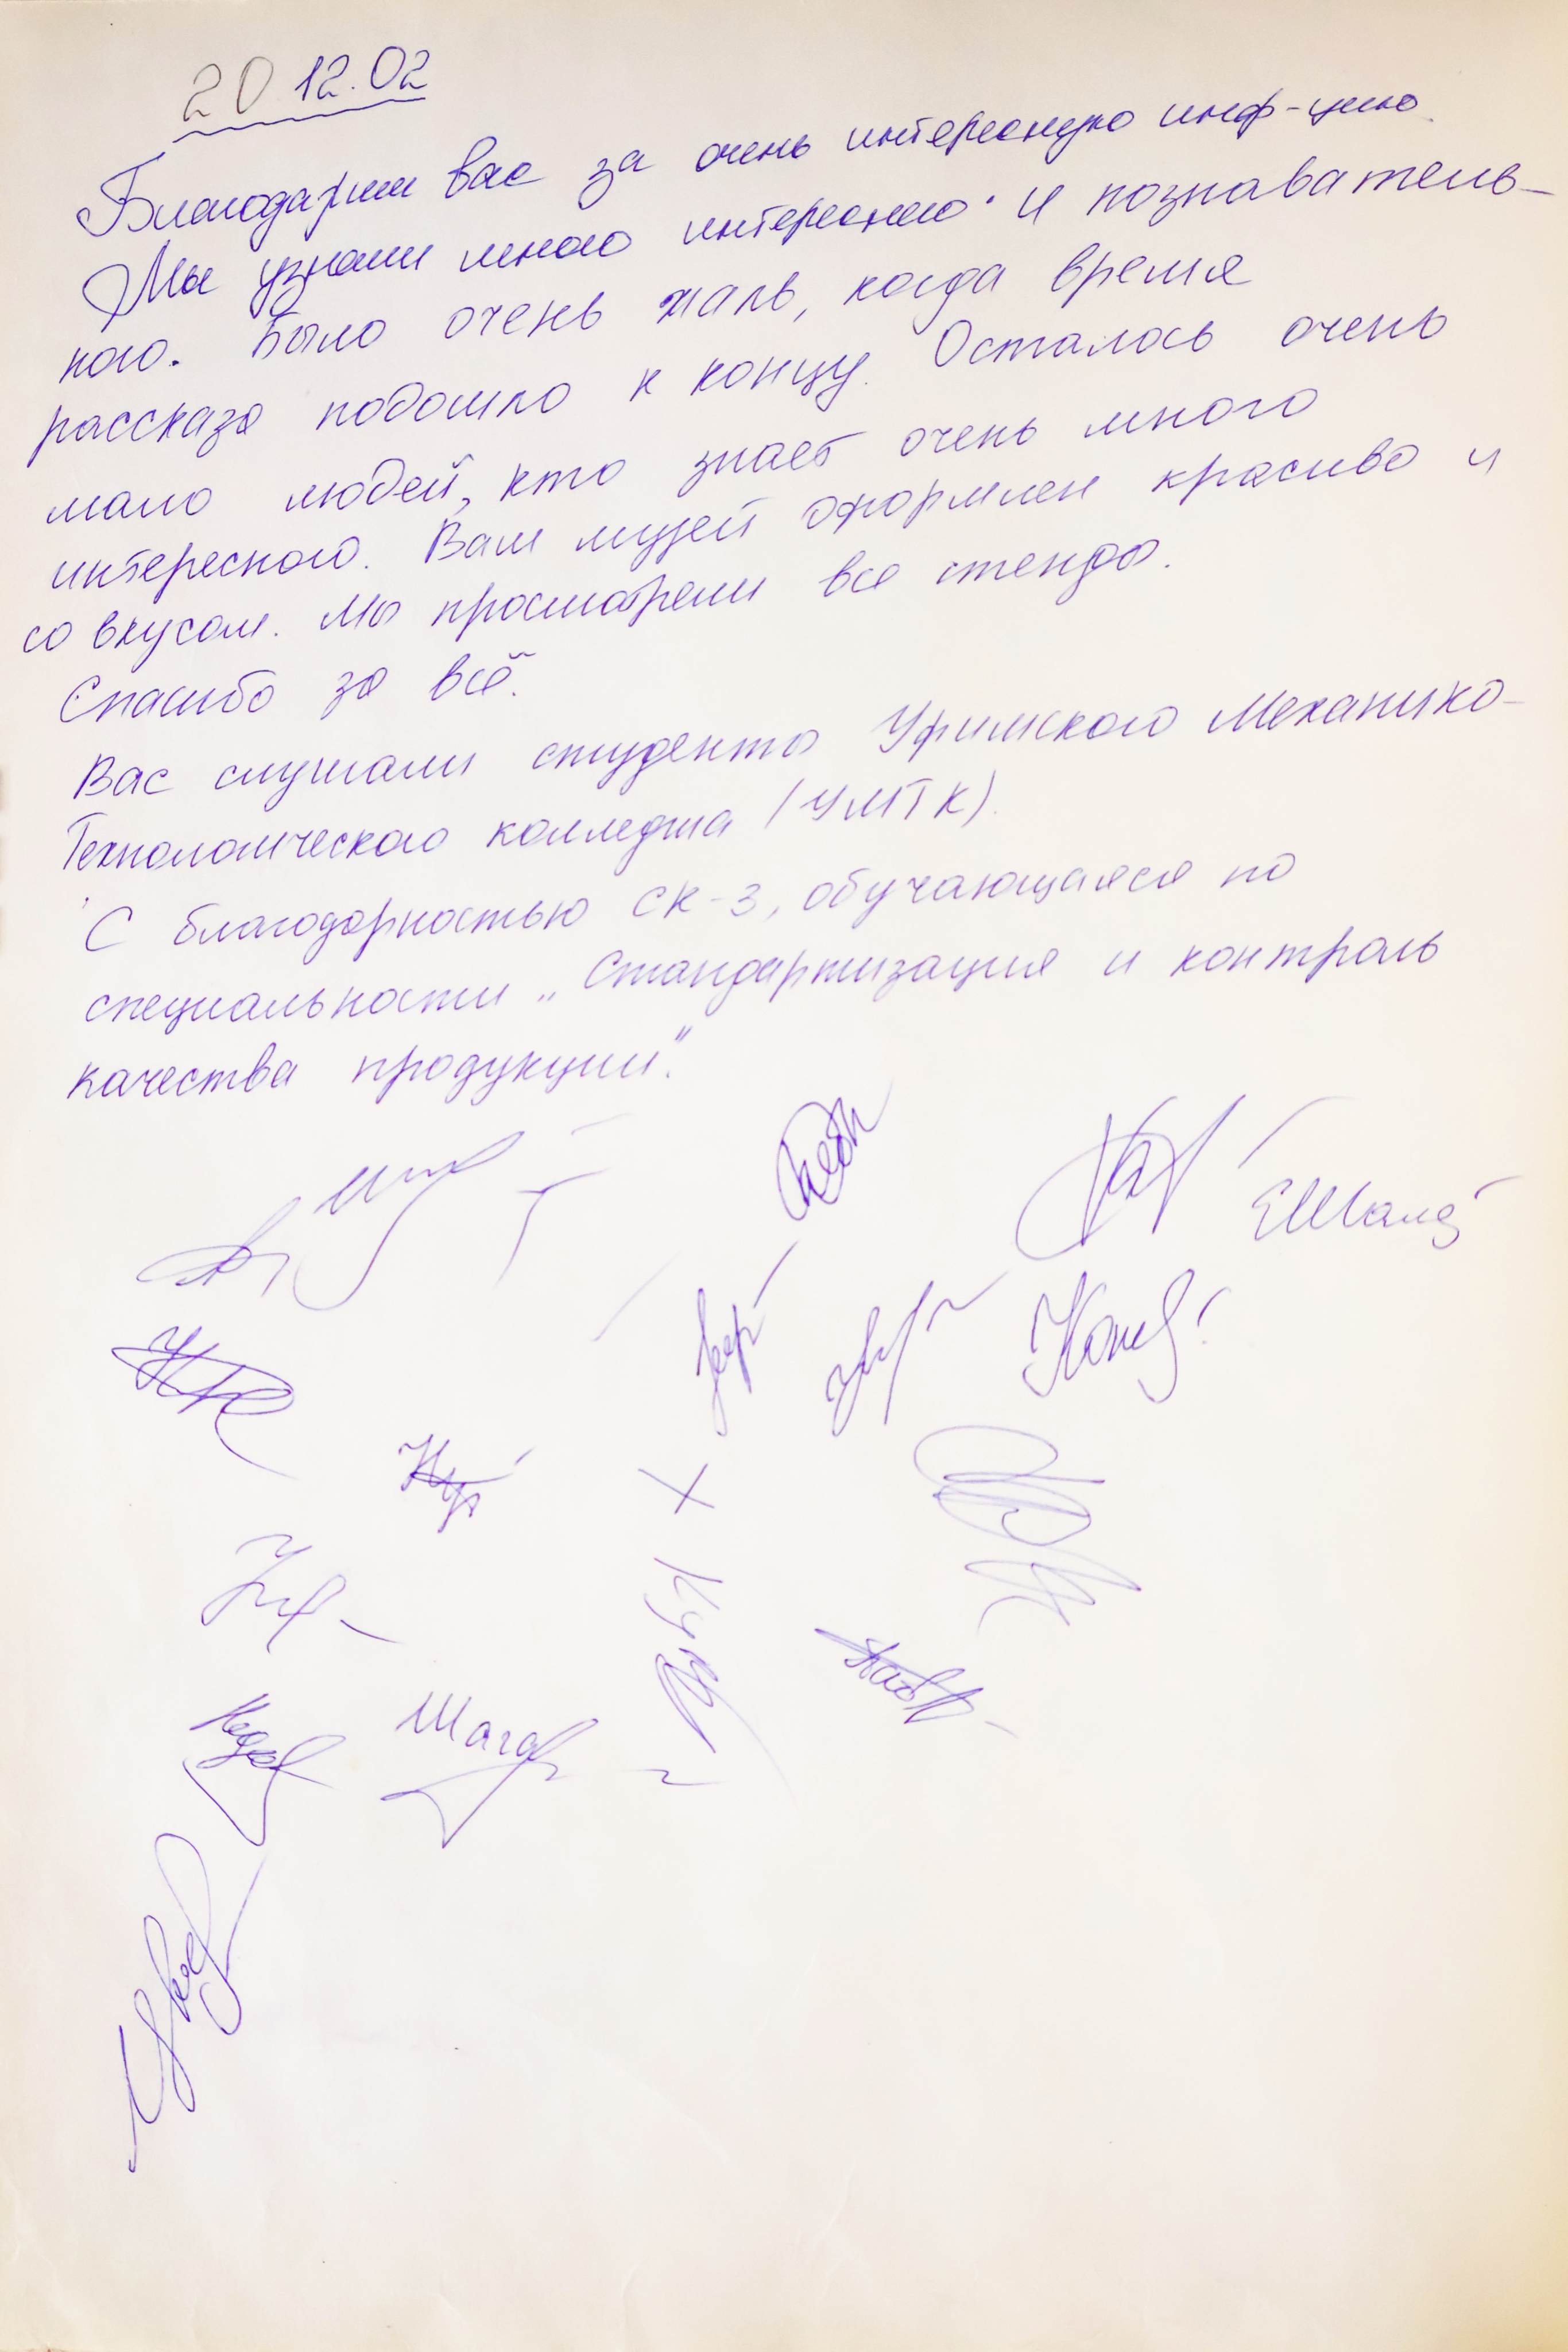 20 12.02
Благодарим вас за очень интересную инф-цию.
Мы узнали много интересного и познаватель-
ного. Было очень жаль, когда время
рассказа подошло к концу. Осталось очень
мало людей, кто знает очень много
интересного. Ваш музей оформлен красиво и
со вкусом. Мы просмотрели все стенды.
Спасибо за всё.
Вас слушали студенты Уфимского Механико-
Технологического колледжа (УМТК).
С благодарностью СК-3, обучающаяся по
специальности „Стандартизация и контроль
качества продукции".